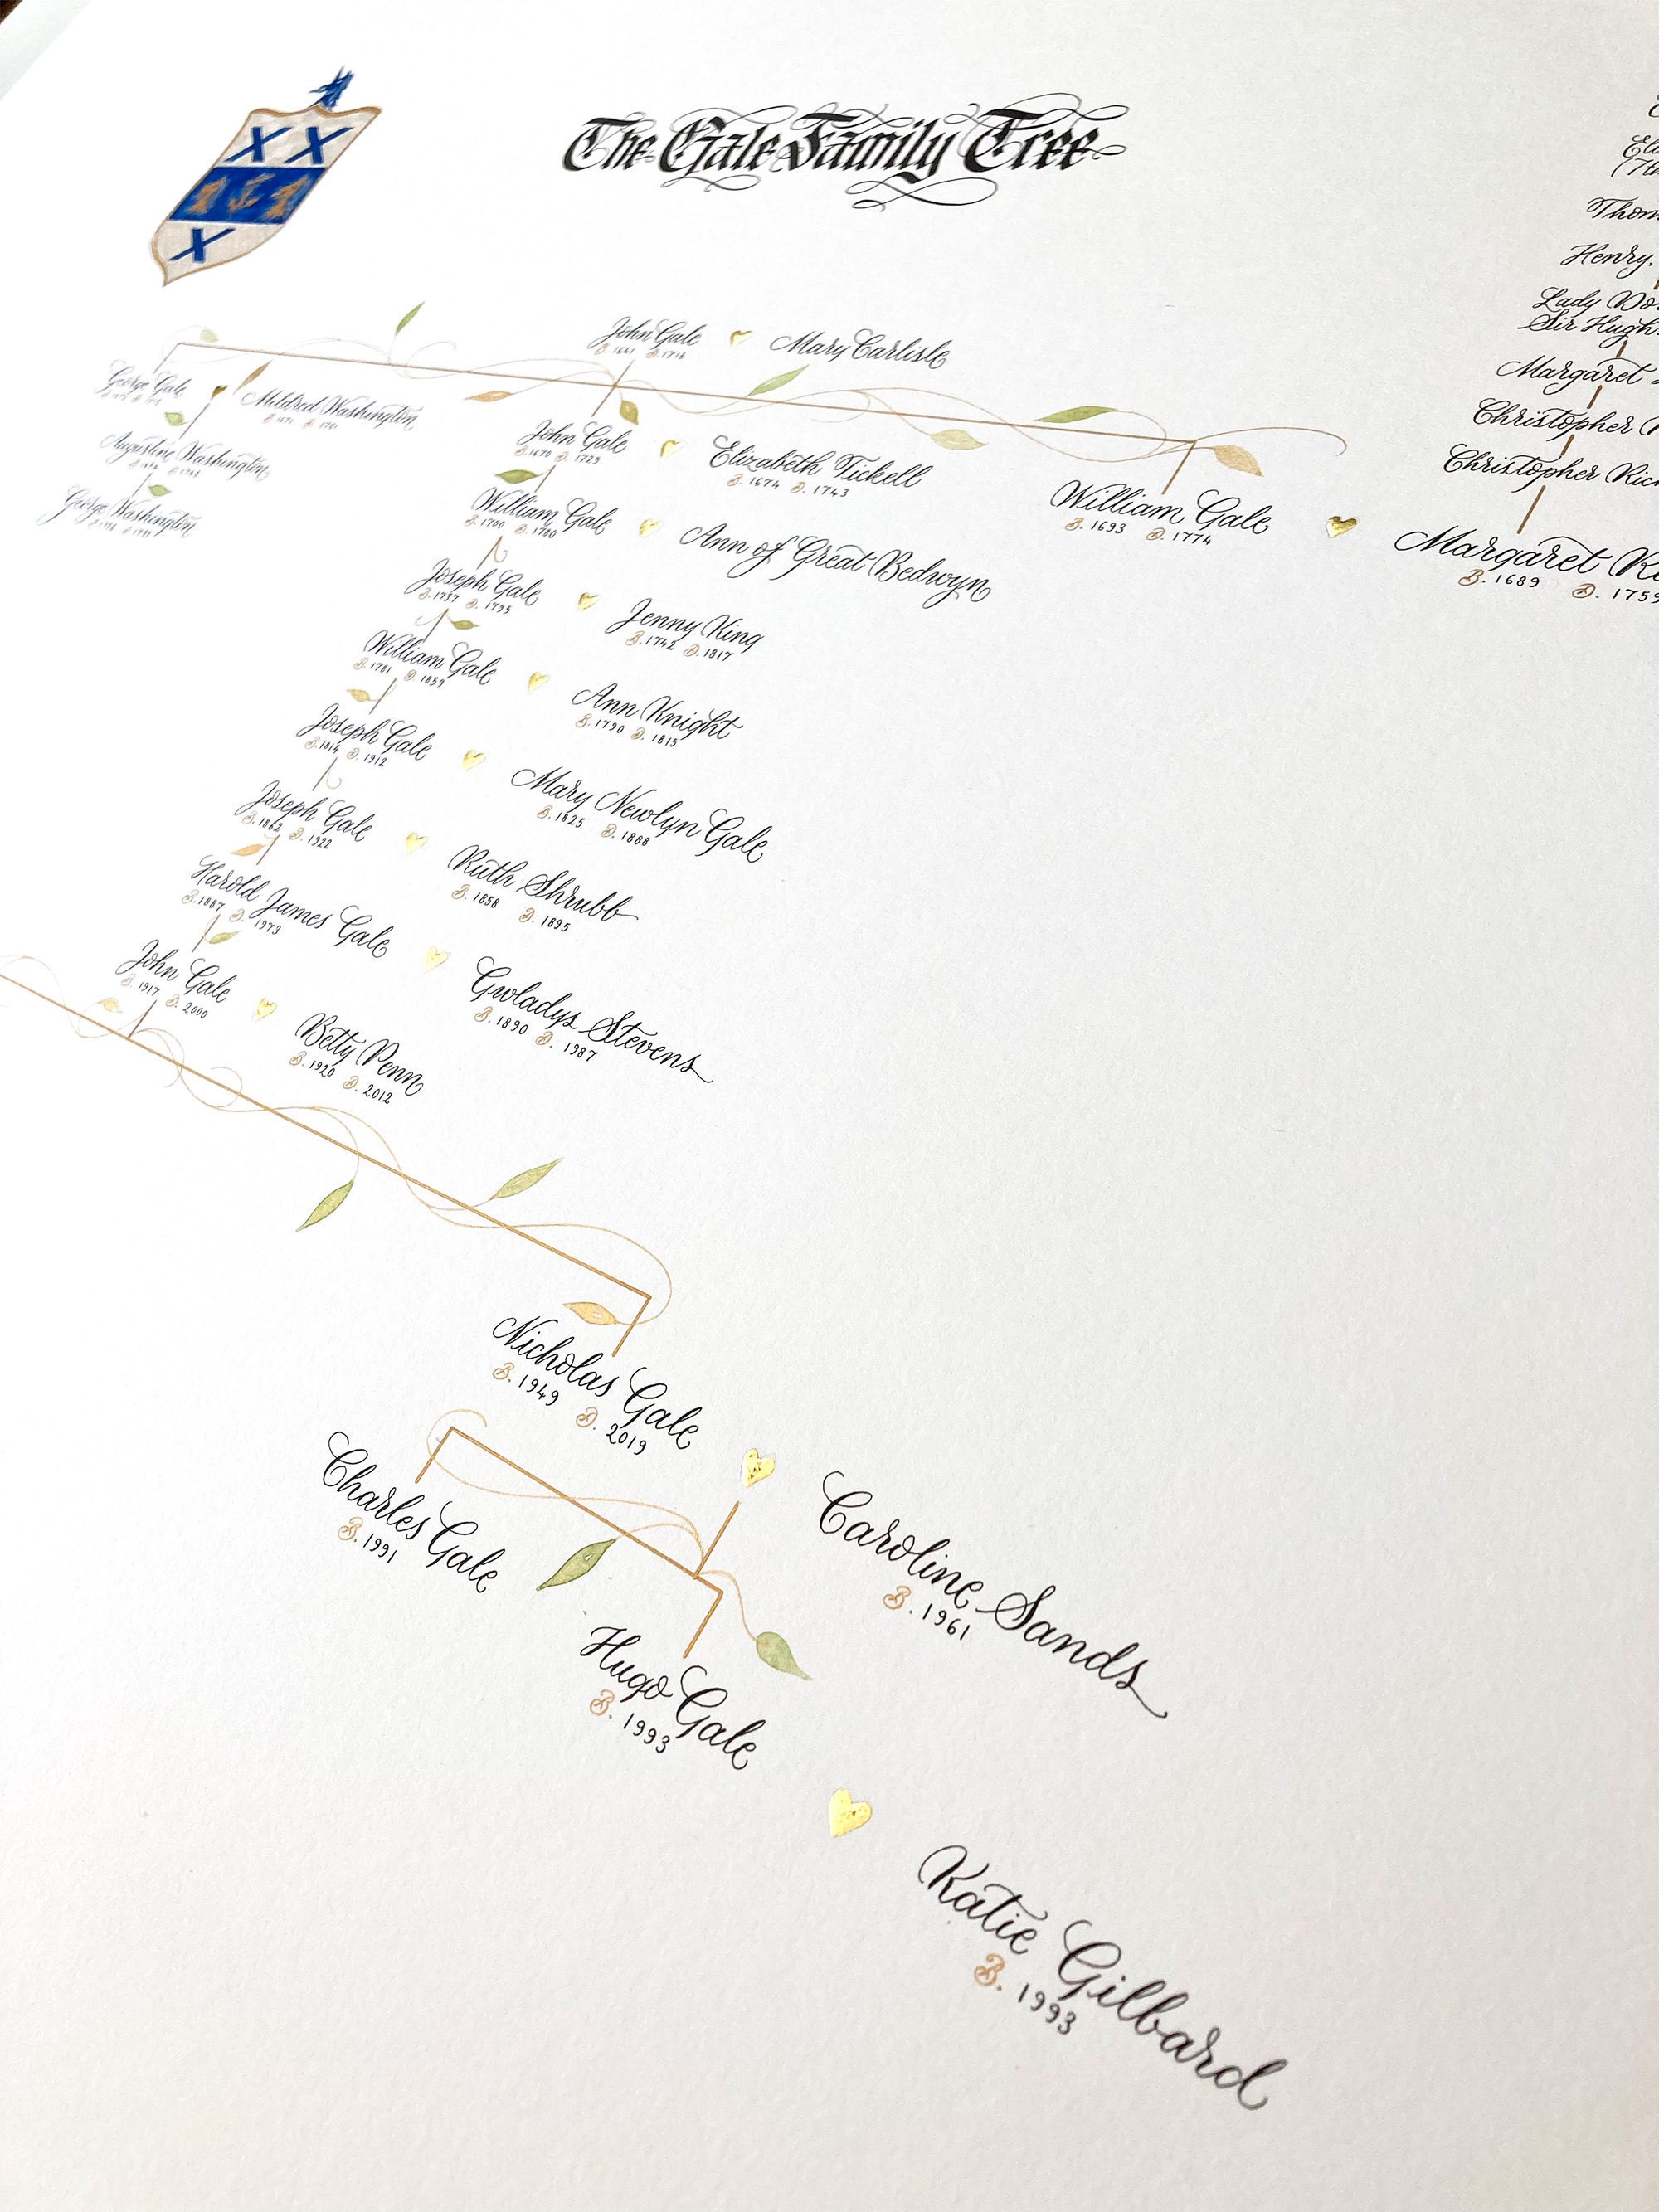 The Gale Family Tree
John Gale
B. 1641 D. 1716
Mary Carlisle
George Gale
Mildred Washington
B. 1671 D. 1701
Augustine Washington
George Washington
John Gale
B. 1670 D. 1729
Elizabeth Tickell
B. 1674 D. 1743
William Gale
B. 1693 D. 1774
Margaret
B. 1689 D. 1759
William Gale
B. 1700 D. 1780
Ann of Great Bedwyn
Joseph Gale
B. 1737 D. 1795
Jenny King
B. 1742 D. 1817
William Gale
B. 1781 D. 1859
Ann Knight
B. 1790 D. 1815
Joseph Gale
B. 1814 D. 1912
Mary Newlyn Gale
B. 1825 D. 1888
Joseph Gale
B. 1862 D. 1922
Ruth Shrubb
B. 1858 D. 1895
Harold James Gale
B. 1887 D. 1973
Gwladys Stevens
B. 1890 D. 1987
John Gale
B. 1917 D. 2000
Betty Penn
B. 1920 D. 2012
Nicholas Gale
B. 1949 D. 2019
Caroline Sands
B. 1961
Charles Gale
B. 1991
Hugo Gale
B. 1993
Katie Gilbard
B. 1993
Henry.
Lady
Sir Hugh
Margaret
Christopher
Christopher
X X
X